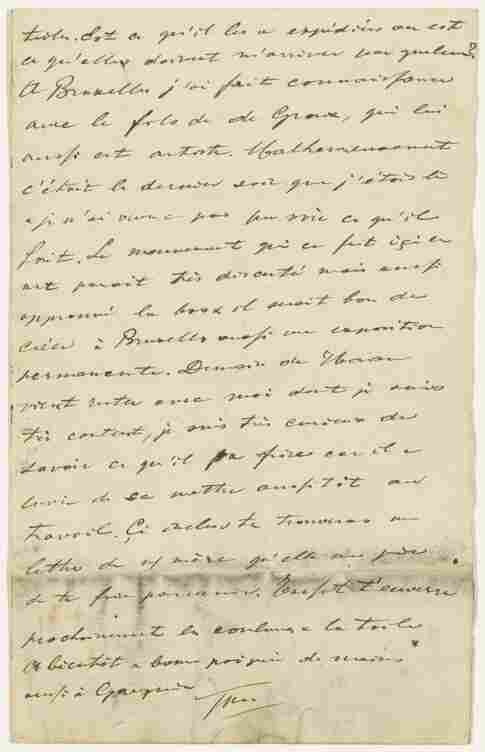 toile. Est ce qu'il les a expédiées ou est
ce qu'elles doivent m'arriver par quelcun?
A Bruxelles j'ai fait connaissance
avec le fils de de Groux, qui lui
aussi est artiste. Malheureusement
c'était le dernier soir que j'étais là
et je n'ai encore pas pu voir ce qu'il
fait. Le mouvement qui ce fait içi en
art parait très discuté mais aussi
approuvé là bas et il serait bon de
créer à Bruxelles aussi une exposition
permanente. Demain de Haan
vient rester avec moi dont je suis
très content, je suis très curieux de
savoir ce qu'il fera car il a
envie de se mettre aussitôt au
travail. Çi inclus tu trouveras une
lettre de notre mère qu'elle me prie
de te faire parvenir. Tersteeg t'enverra
prochainement les couleurs et la toile
A bientôt et bonne poignée de main
aussi à Gauguin
Theo